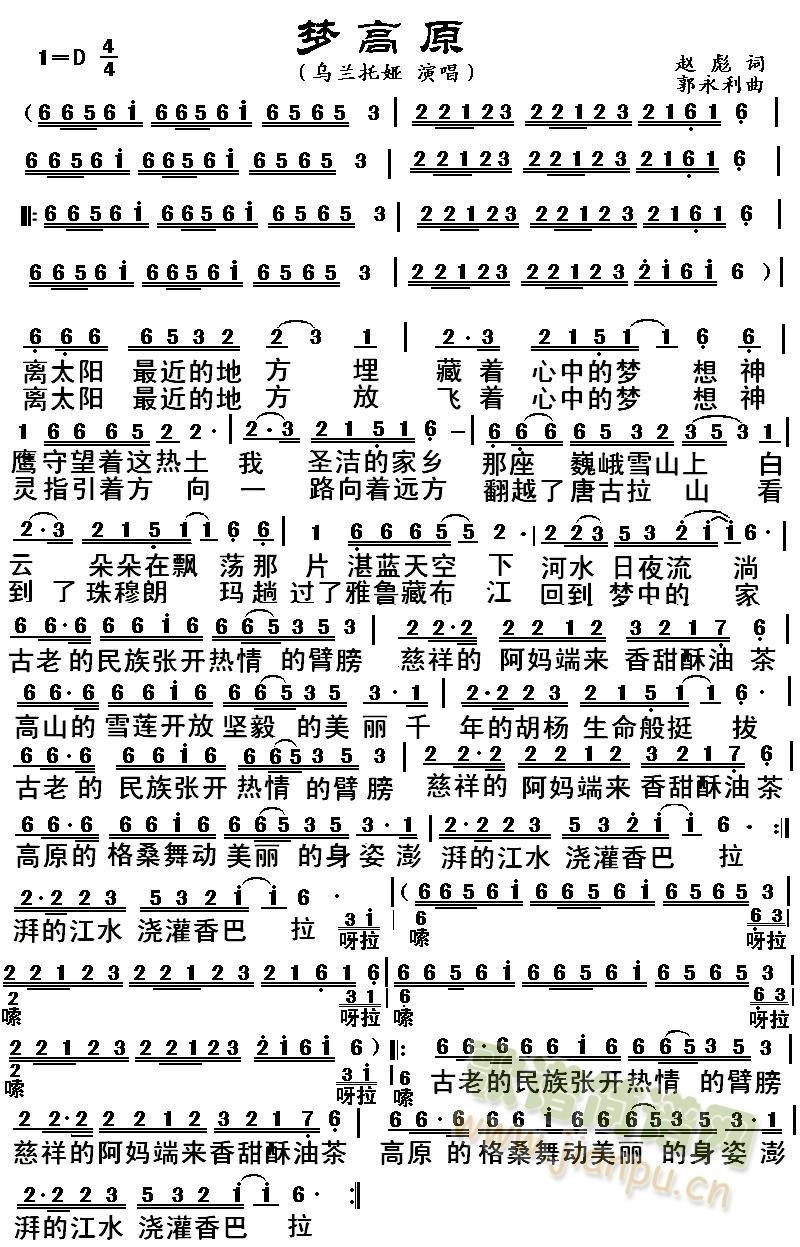 梦高原
1=D 4/4
（乌兰托娅 演唱）
赵 彪 词
郭永利曲
（66561 66561 6565 3 | 221 23 221 23 2161 6 |
66561 66561 6565 3 | 22123 22123 2161 6 |
‖: 66561 66561 6565 3 | 22123 22123 2161 6 |
66561 66561 6565 3 | 22123 22123 2161 6 ）|
6 66 6532 2 3 1 | 2·3 2151 1 6 6
离太阳 最近的地 方 埋 藏着 心中的梦 想神
离太阳 最近的地 方 放 飞着 心中的梦 想神
1 6665 2 2·| 2·3 2151 6 – | 6 66 6532 353 1 |
鹰守望着这热土 我 圣洁的家乡 那座 巍峨雪山上 白
灵指引着方 向 一 路向着远方 翻越了唐古拉 山看
2·3 2151 1 6 6 | 1 6665 5 2 ·| 223 53 2 1 1 6· |
云 朵朵在飘 荡那 片 湛蓝天空 下 河水 日夜流 淌
到了珠穆朗 玛趟 过了雅鲁藏布 江 回到 梦中的 家
66·6 6616 66535 3 | 22·2 2212 3217 6 |
古老的民族张开热情 的臂膀 慈祥的 阿妈端来 香甜酥油 茶
66·6 6616 66535 3·1 | 2·223 2151 1 6· |
高山的 雪莲开放 坚毅 的美 丽 千 年的胡杨 生命般挺 拔
66·6 6616 66535 3 | 22·2 2212 3217 6 |
古老的 民族张开 热情 的臂膀 慈祥的 阿妈端来香甜酥油茶
66·6 6616 66535 3·1 | 2·223 5321 1 6· :‖
高原的 格桑舞动 美丽 的身 姿 澎 湃的江水 浇灌香巴 拉
2·223 5321 1 6 · |（66561 66561 6565 3 |
湃的江水 浇灌香巴 拉 31 6 63
呀拉 嗦 呀拉
22123 22123 2161 6 | 66561 66561 6565 3 |
2 31 6 63
嗦 呀拉 嗦 呀拉
22123 22123 2161 6 ）‖:
2 31 6
嗦 呀拉 嗦 古老的民族张开热情 的臂膀
22·2 2212 3217 6 | 66·6 6616 66535 3·1 |
慈祥的阿妈端来香甜酥油茶 高原 的格桑舞动美丽 的身姿 澎
2·223 5321 1 6 · :‖
湃的江水 浇灌香巴 拉
www.jianpu.cn